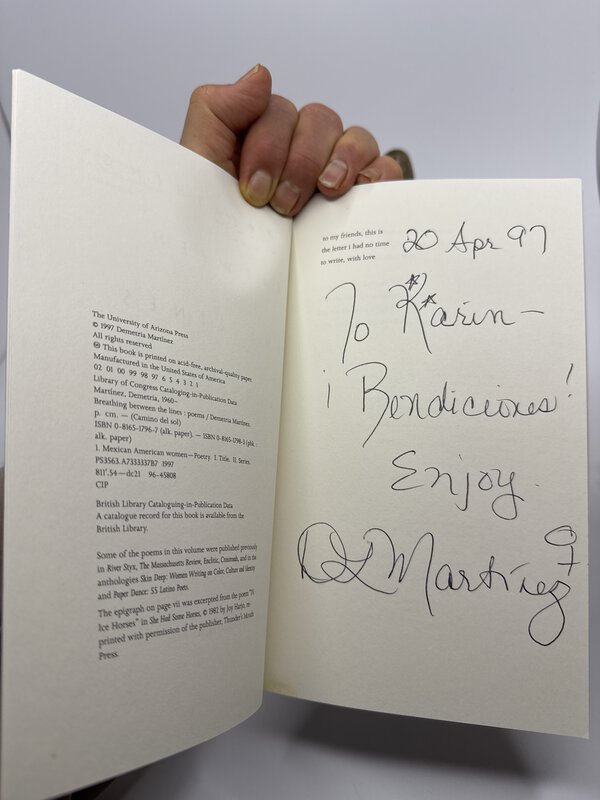 The University of Arizona Press
© 1997 Demetria Martínez
All rights reserved
♾ This book is printed on acid-free, archival-quality paper.
Manufactured in the United States of America
02 01 00 99 98 97 6 5 4 3 2 1
Library of Congress Cataloging-in-Publication Data
Martínez, Demetria, 1960–
Breathing between the lines : poems / Demetria Martínez.
p. cm. — (Camino del sol)
ISBN 0-8165-1796-7 (alk. paper). — ISBN 0-8165-1798-3 (pbk. :
alk. paper)
1. Mexican American women—Poetry. I. Title. II. Series.
PS3563.A7333337B7 1997
811'.54—dc21 96-45808
CIP
British Library Cataloguing-in-Publication Data
A catalogue record for this book is available from the
British Library.
Some of the poems in this volume were published previously
in River Styx, The Massachusetts Review, Enclitic, Crosswinds, and in the
anthologies Skin Deep: Women Writing on Color, Culture and Identity
and Paper Dance: 55 Latino Poets.
The epigraph on page vii was excerpted from the poem "V
Ice Horses" in She Had Some Horses, © 1982 by Joy Harjo, re-
printed with permission of the publisher, Thunder's Mouth
Press.
to my friends, this is
the letter i had no time
to write, with love
20 Apr 97
To Karin—
¡Bendiciones!
Enjoy.
D Martínez